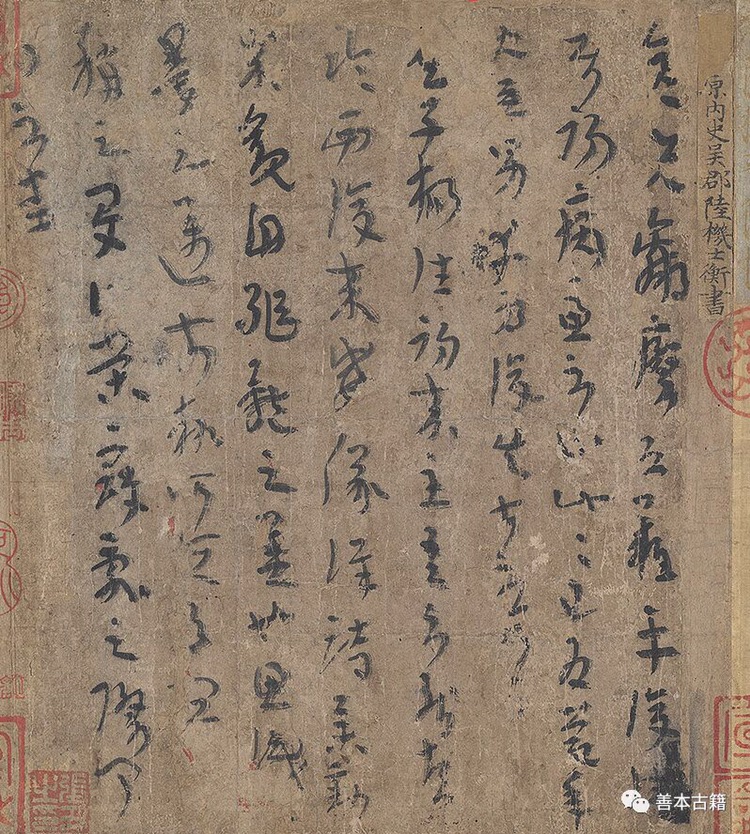 原內史吳郡陸機士衡書
彥先羸瘵恐難平復往
初病慮不止此此已為慶承
使唯男幸為復失前憂耳
吳子楊往初來主吾不能盡
臨西復來威儀詳跱舉動
成觀自軀體之美也思識
量之邁前勢所恆有宜
稱之夏伯榮寇亂之際聞
問不悉
善本古籍